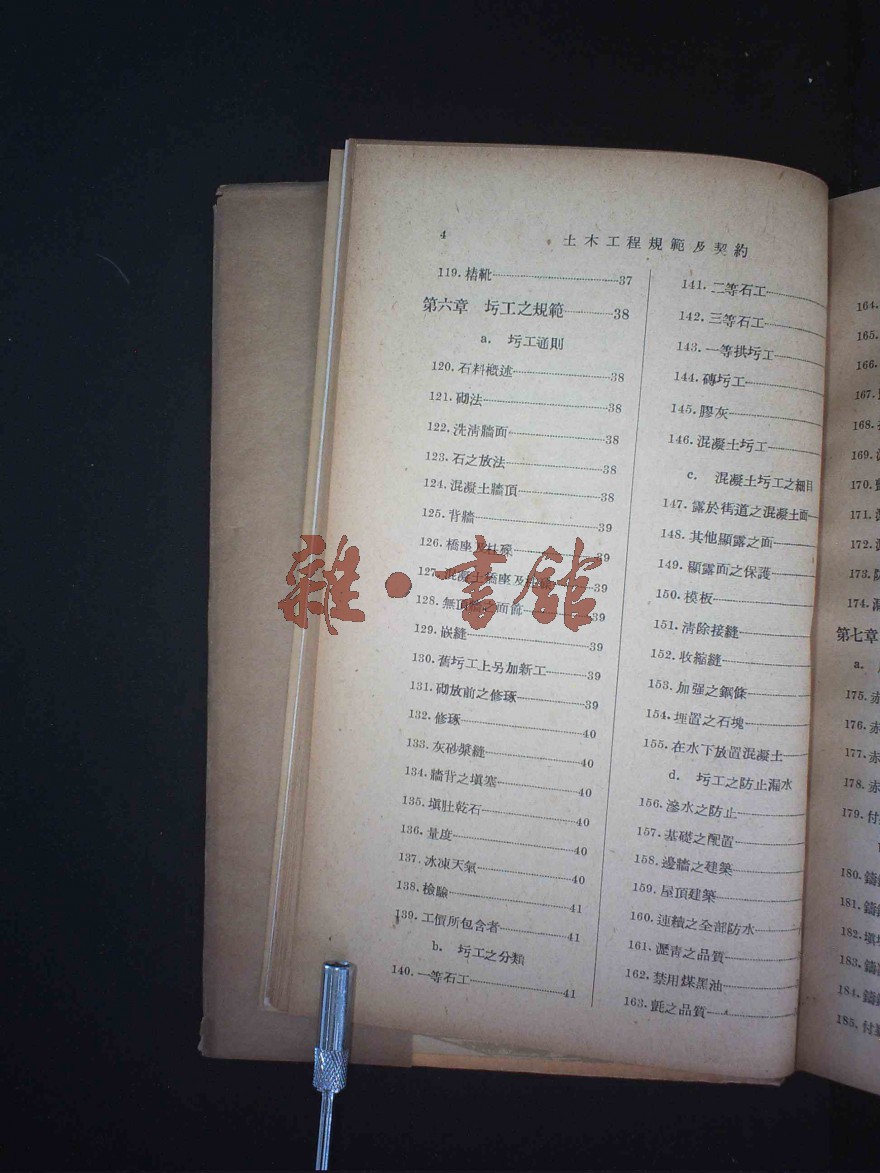 4
土木工程規範及契約
119. 樁靴 37
第六章 圬工之規範 38
a. 圬工通則
120. 石料概述 38
121. 砌法 38
122. 洗清牆面 38
123. 石之放法 38
124. 混凝土牆頂 38
125. 背牆 39
126. 橋座及 39
127. 混凝土橋座及
128. 無頂 面飾 39
129. 嵌縫 39
130. 舊圬工上另加新工 39
131. 砌放前之修琢 39
132. 修琢 40
133. 灰砂漿縫 40
134. 牆背之塡塞 40
135. 塡肚乾石 40
136. 量度 40
137. 冰凍天氣 40
138. 檢驗 41
139. 工價所包含者 41
b. 圬工之分類
140. 一等石工 41
141. 二等石工
142. 三等石工
143. 一等拱圬工
144. 磚圬工
145. 膠灰
146. 混凝土圬工
c. 混凝土圬工之細目
147. 露於街道之混凝土面
148. 其他顯露之面
149. 顯露面之保護
150. 模板
151. 清除接縫
152. 收縮縫
153. 加强之鋼條
154. 埋置之石塊
155. 在水下放置混凝土
d. 圬工之防止漏水
156. 滲水之防止
157. 基礎之配置
158. 邊牆之建築
159. 屋頂建築
160. 連續之全部防水
161. 瀝靑之品質
162. 禁用煤黑油
163. 氈之品質
164.
165.
166.
167.
168.
169.
170.
171.
172.
173.
174.
第七章
a.
175. 赤
176. 赤
177. 赤
178. 赤
179. 付
180. 鑄
181. 鑄
182. 塡
183. 鑄
184. 鑄
185. 付
雜·書館